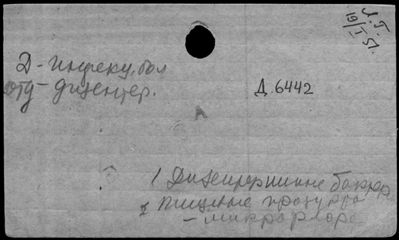 Л. Г.
19/I 51.
Д - Инфекц. бол
отд - дизентер.
Д. 6442
А
1 Дизентерийные бактер
2 Пищевые продукты
- микрофлора